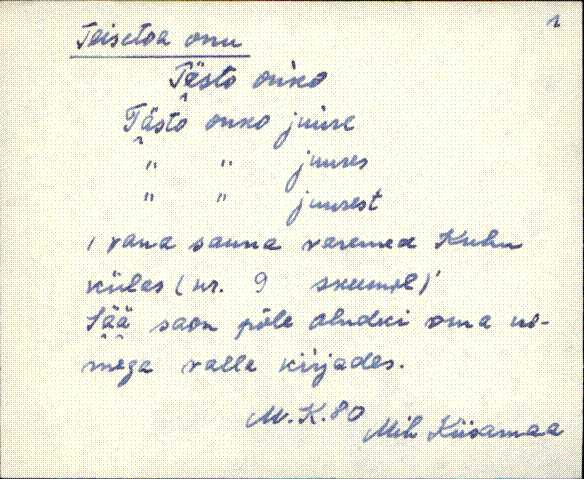 1
Teisetoa onu
Tästo onko
Tästo onko juure
" " juures
" " juurest
, vana sauna varemed Kuhu
külas (nr. 9 skeemil)'
Sää saon põle olndki oma ni-
mega valla kirjades.
M.K.80 Mih Kiisamaa